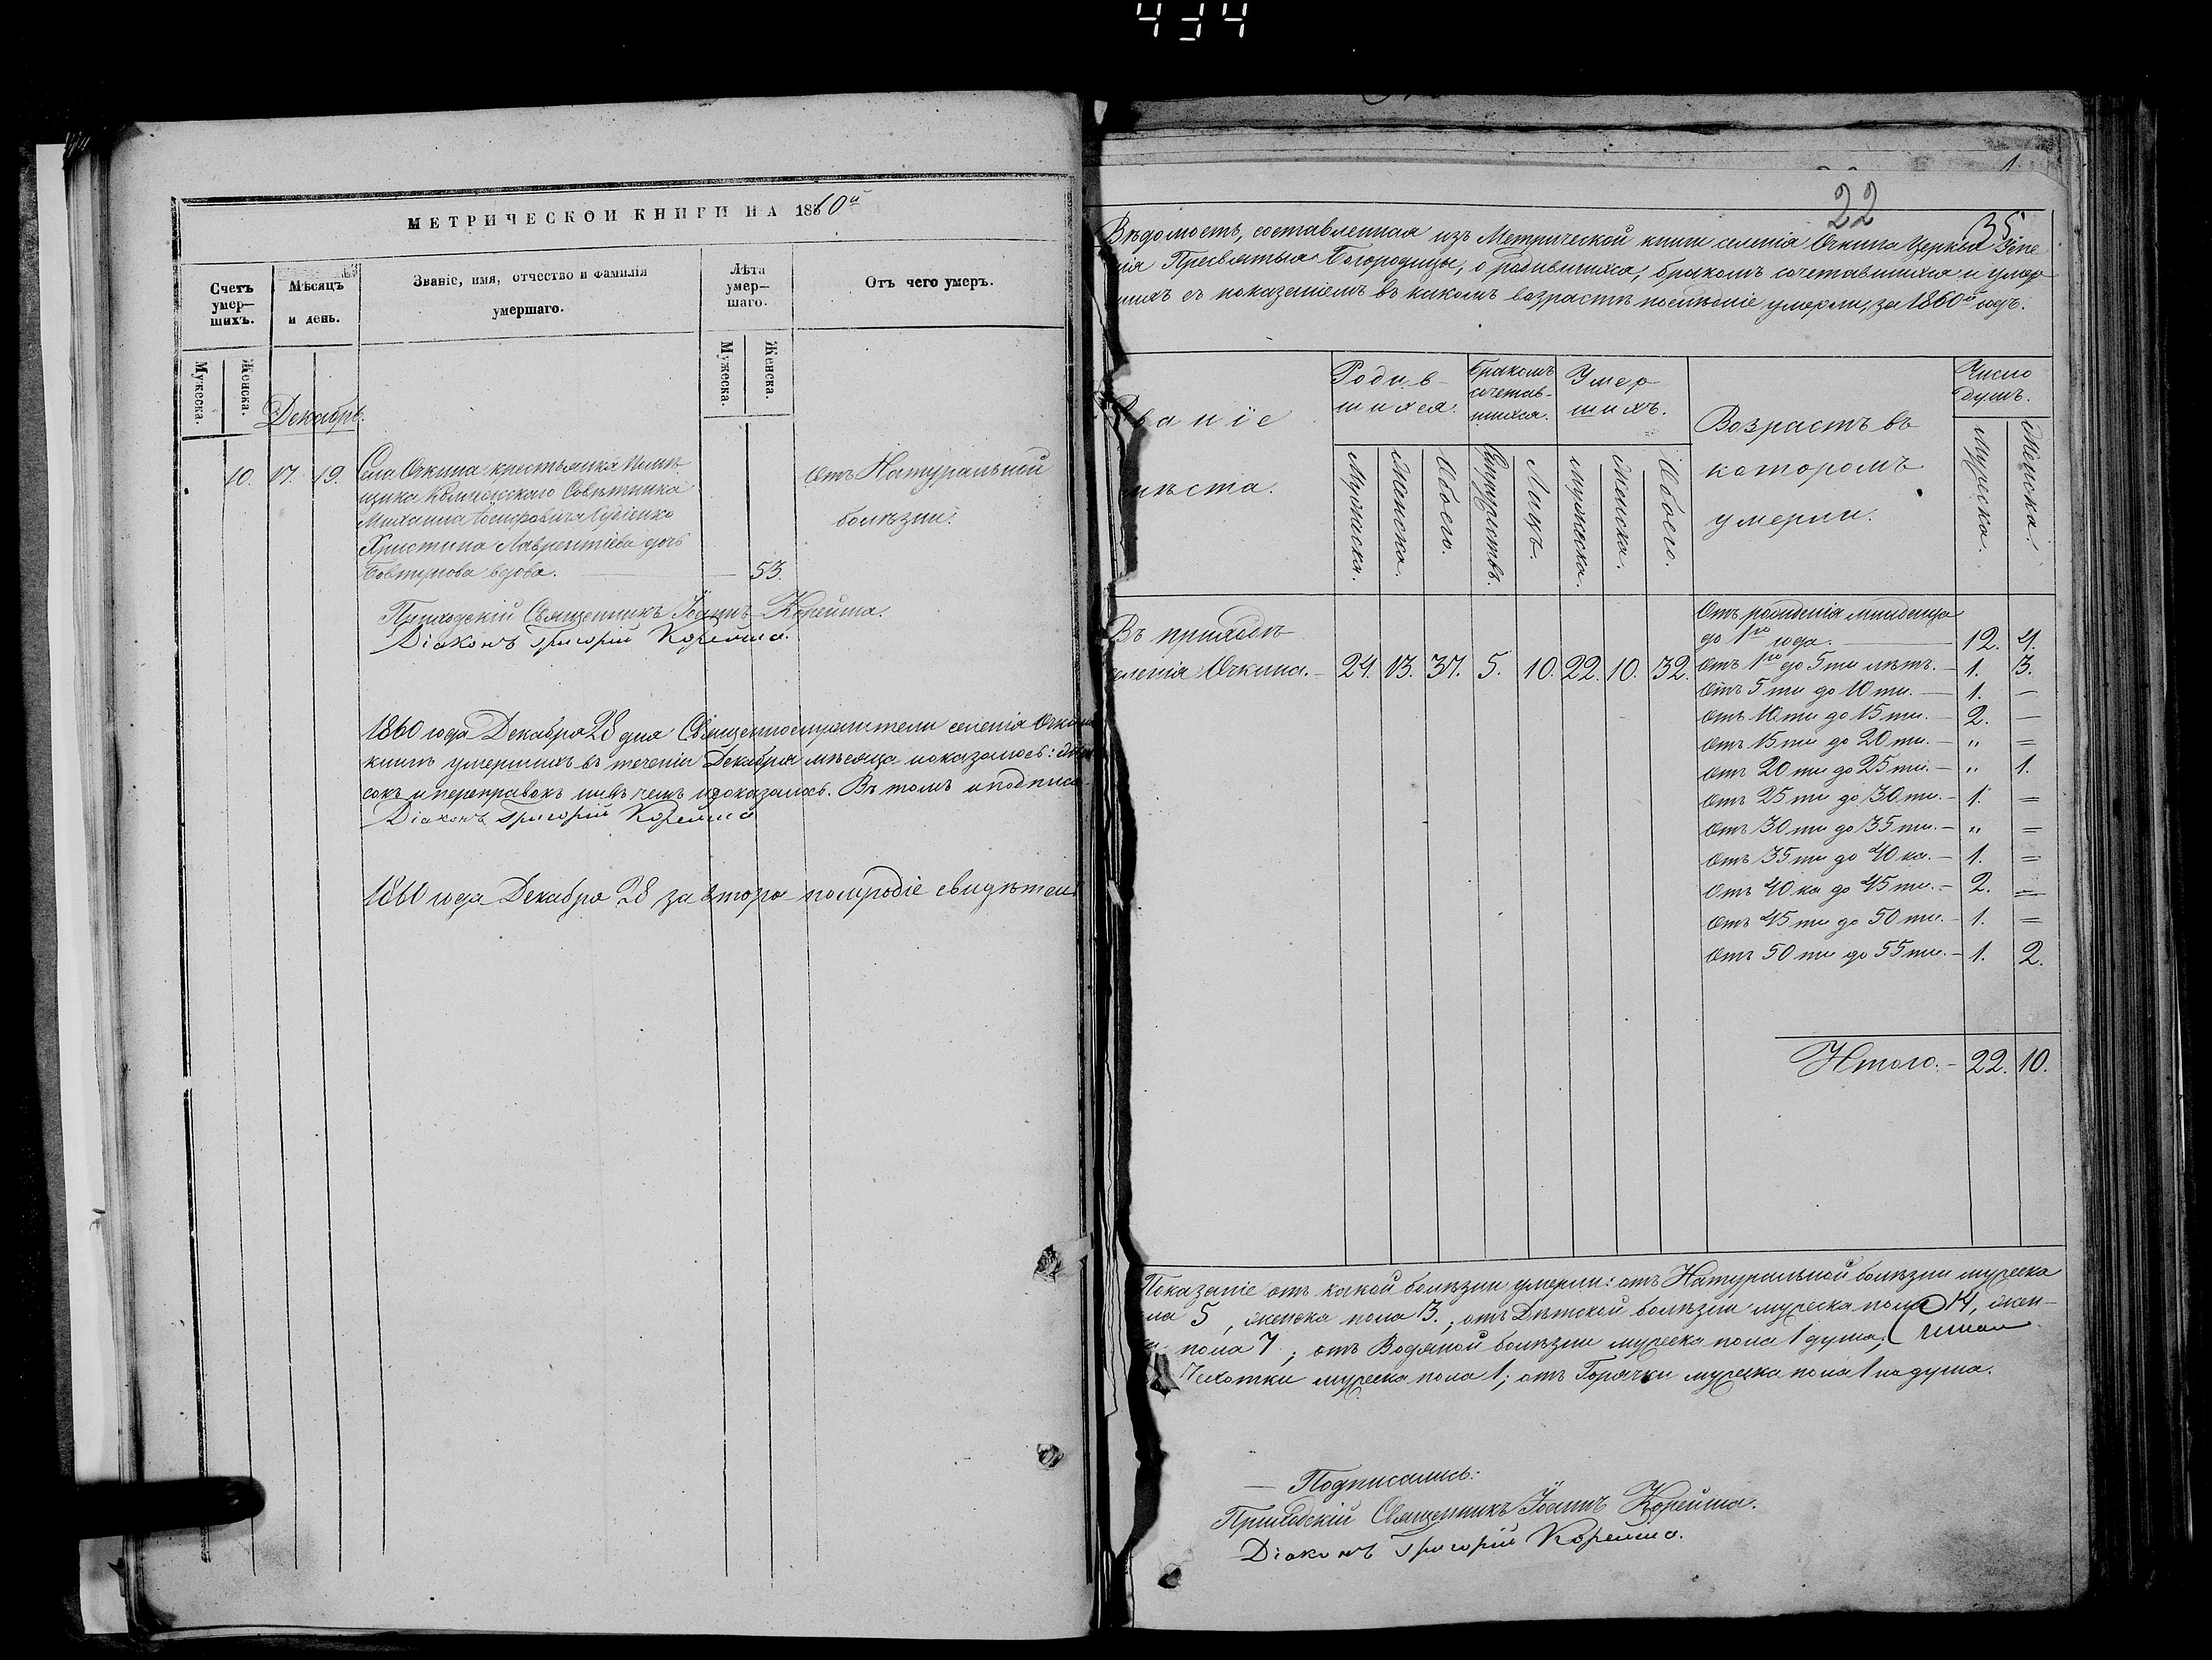 434
МЕТРИЧЕСКОЙ КНИГИ НА 1860й
Счетъ умер—шихъ.
Мѣсяцъ и день.
Званіе, имя, отчество и фамилія умершаго.
Лѣта умер—шаго.
Отъ чего умеръ.
Мужеска.
Женска.
Мужеска.
Женска.
Декабрь.
10. 17. 19. Села Очкина крестьянка помѣ-
щика Колежскаго Совѣтника
Михаила Іосифовича Судіенко
Христина Лаврентіева дочь
вдова. — 53.
Отъ Натуральной
болѣзни.
Приходскій Священникъ Іоаннъ Корейша.
Діаконъ Григорій Корейша.
1860 года Декабря 28 дня Священнослужители селенія
книгѣ умершихъ въ теченіи Декабря мѣсяца показалось:
сокъ и переправокъ ни въ чемъ Въ томъ и подписа-
Діаконъ Григорій Корейша
1860 года Декабря 28 за второ полугодіе свидѣтел
1
22
35
Вѣдомость, составленная изъ Метрической книги селенія Очкина Церкви Успе
нія Пресвятыя Богородицы, о родившихся, бракомъ сочетавшихся и умер
шихъ съ показаніемъ въ какомъ возрастѣ послѣдніе умерли, за 1860й годъ.
Званіе
мѣста.
Родив-
шихся.
Бракомъ
сочетав-
шихся.
Умер
шихъ.
Возрастъ въ
которомъ
умерли.
Число
душъ.
Мужеска.
Женска.
Обоего.
Супружествъ.
Лицъ.
Мужеска.
Женска.
Обоего.
Мужеска.
Женска.
Въ приходѣ
селенія Очкина. — 24. 13. 37. 5. 10. 22. 10. 32.
Отъ рожденія младенца
до 1го года. — 12. 4.
Отъ 1го до 5ти лѣтъ. — 1. 3.
Отъ 5ти до 10ти. — 1. —
Отъ 10ти до 15ти. — 2. —
Отъ 15ти до 20ти. — „ =
Отъ 20ти до 25ти. — „ 1.
Отъ 25ти до 30ти. — 1. =
Отъ 30ти до 35ти. — „ =
Отъ 35ти до 40ка. — 1. =
Отъ 40ка до 45ти. — 2. =
Отъ 45ти до 50ти. — 1. =
Отъ 50ти до 55ти. — 1. 2.
Итого. — 22. 10.
Показаніе отъ какой болѣзни умерли: отъ Натуральной болѣзни мужеска
пола 5, женска пола 3.; отъ Дѣтской болѣзни мужеска пола 14, жен-
пола 7; отъ Водяной болѣзни мужеска пола 1 душа;
Чехотки мужеска пола 1; отъ Горячки мужеска пола 1на душа.
— Подписались:
Приходскій Священникъ Іоаннъ Корейша.
Діаконъ Григорій Корейша.